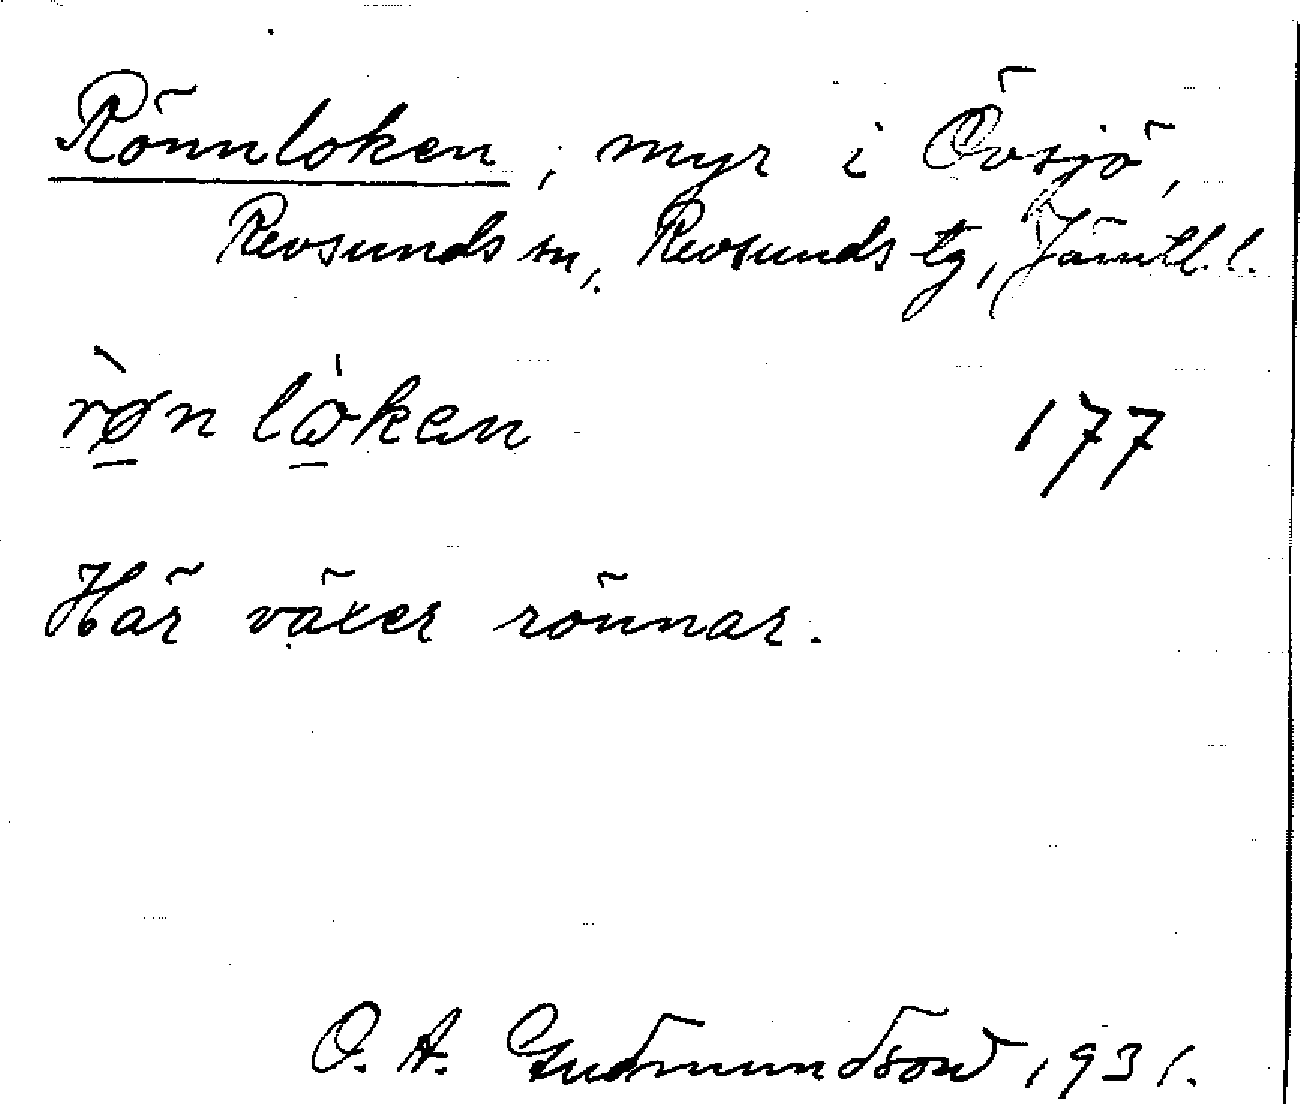 Rönnloken, myr i Övsjö,
Revsunds sn, Revsunds tg, Jämtl. l.
rø̀n lòken 177
Här växer rönnar.
O. A. Gudmundsson 1931.